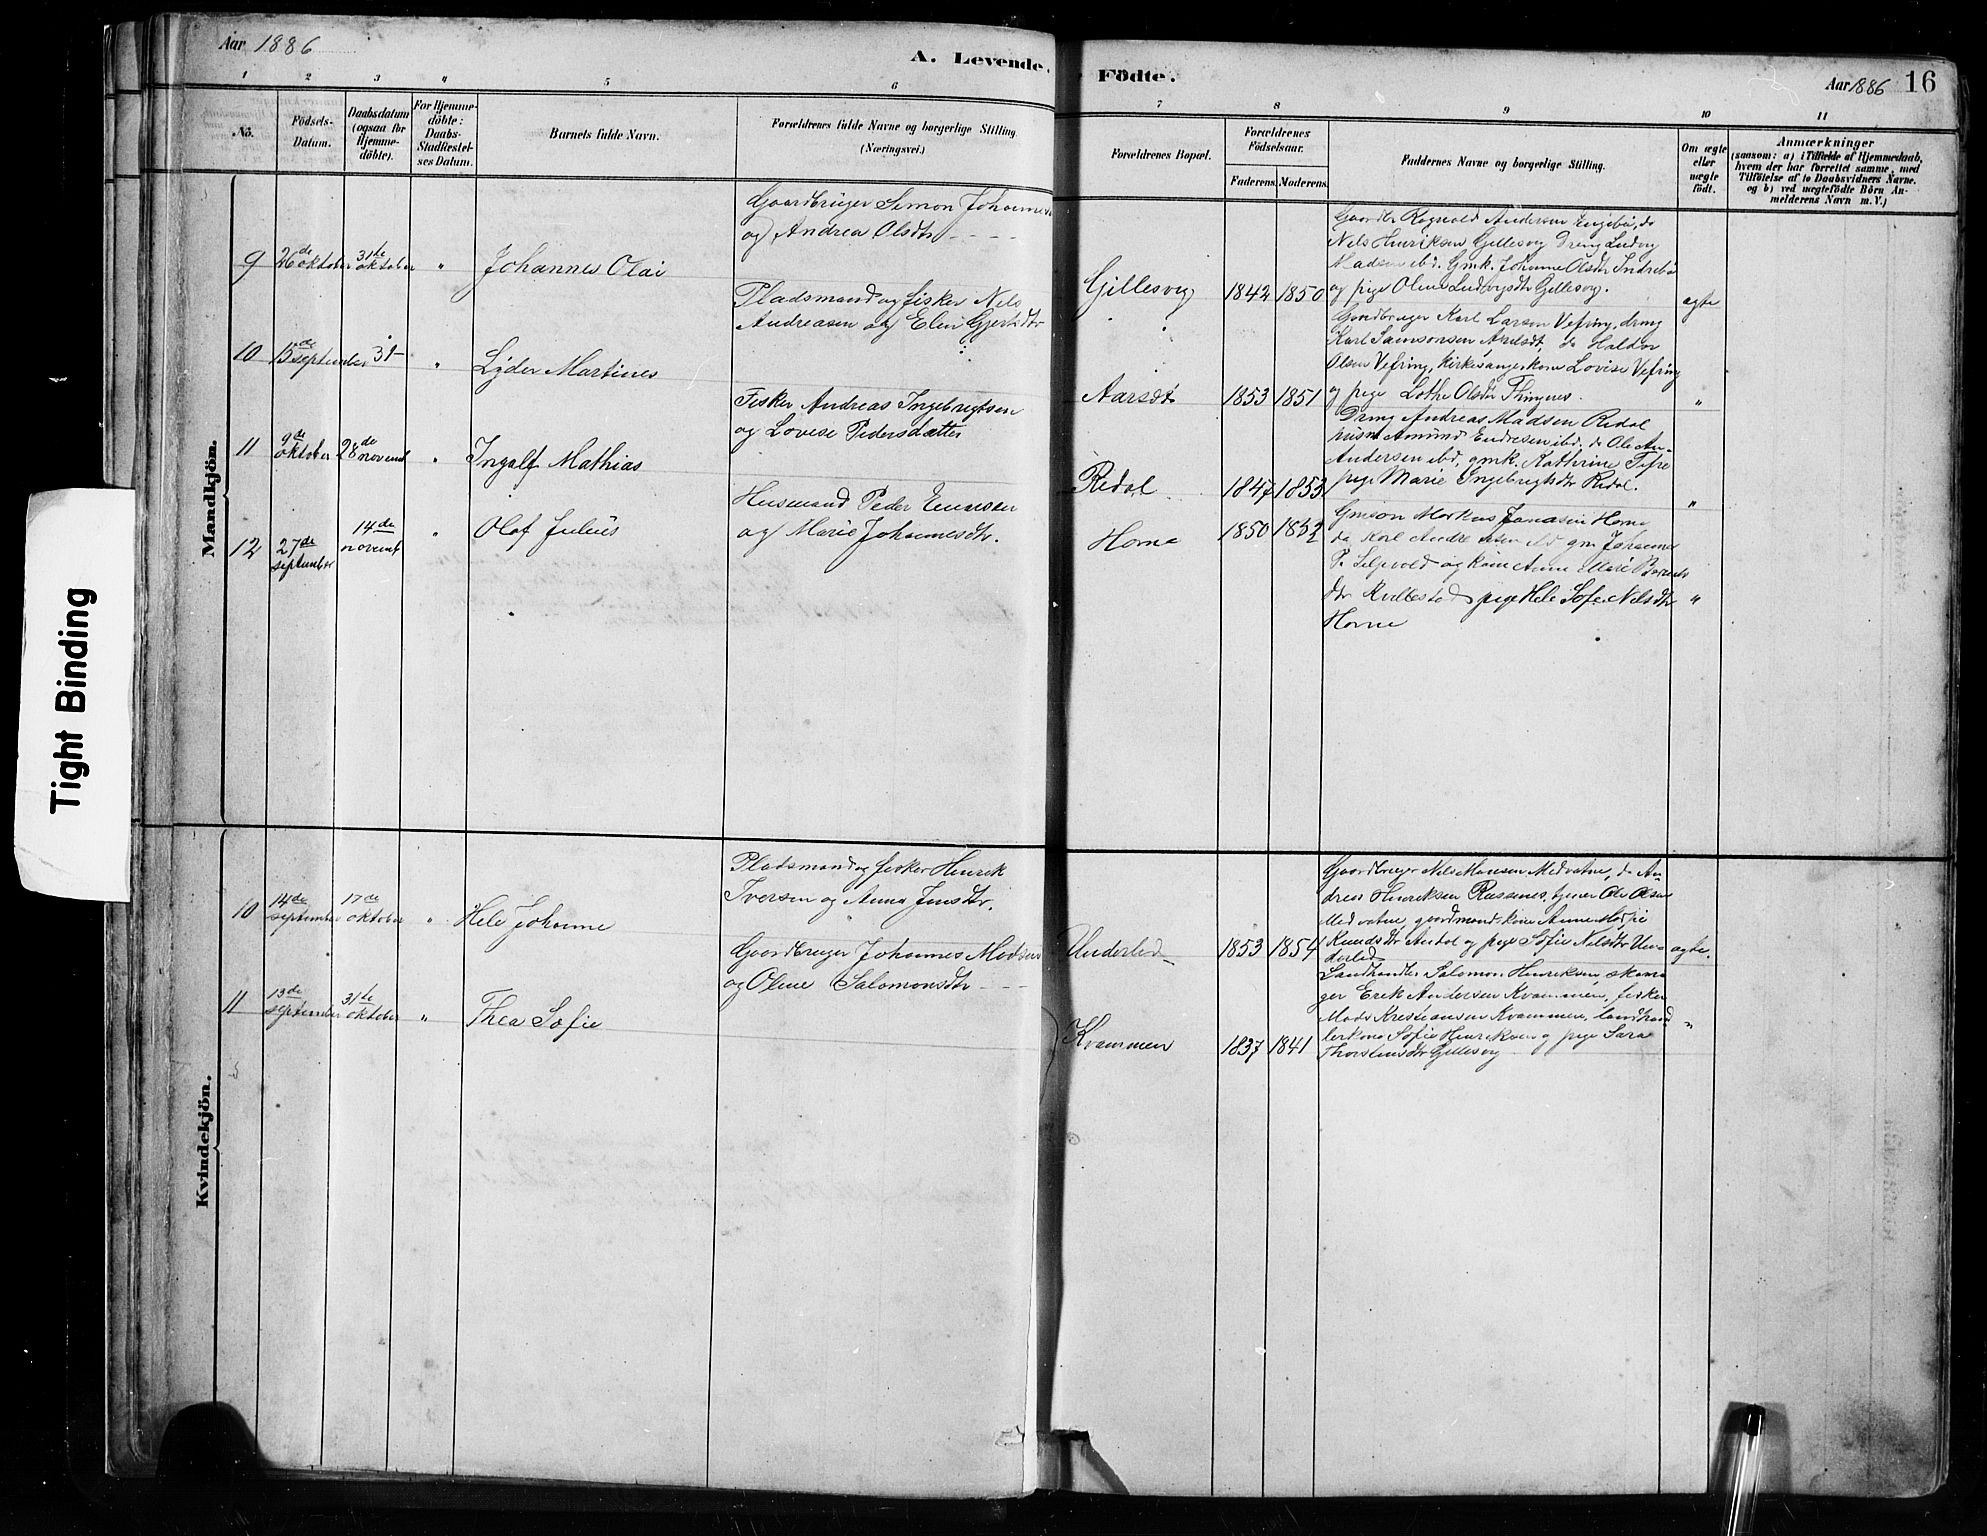 Aar 1886
A. Levende.
1 2 3 4 5 6
No.
Födsels-
Datum.
Daabsdatum
(ogsaa for
Hjemme-
döbte).
For Hjemme-
döbte:
Daabs-
Stadfestel-
ses Datum.
Barnets fulde Navn.
Forældrenes fulde Navne og borgerlige Stilling.
(Næringsvei.)
Mandkjön.
Gaardbruger Simon Johannes
og Andrea Olsdtr
9 26de oktober 31te oktober " Johannes Olai
Pladsmand og fisker Nels
Andreasen og Elen Gjertsdtr
10 15de september 31- " Lyder Martines
Fisker Andreas Ingebrigtsen
og Lovise Pedersdatter
11 9de oktober 28de novemb " Ingolf Mathias
Husmand Peder
og Marie Johannesdtr.
12 27de september 14de novemb " Olaf Julius
Kvindekjön.
Pladsmand og fisker Henrik
Iversen og Anna Jensdtr.
10 14de september 17de oktober " Hele Johanne
Gaardbruger Johannes Madsen
og Olene Salomonsdtr
11 13de september 31te oktober " Thea Sofie
Födte.
Aar 1886 16
7 8 9 10 11
Forældrenes Bopæl.
Forældrenes
Födselsaar.
Faderens. Moderens.
Faddernes Navne og borgerlige Stilling.
Om ægte
eller
uægte
födt.
Anmærkninger
(saasom: a) i Tilfælde af Hjemmedaab,
hvem der har forrettet samme, med
Tilföielse af to Daabsvidners Navne.
og b) ved uægtefödte Börn An-
melderens Navn m. V.)
Gaardbr Ragnvald Andersen Engebø, do
Nels Henriksen Gillesvig Dreng Ludvig
Madsen ibd. Gmk. Johanne Olsdtr Indrebø
og pige Olene Ludvigsdtr Gillesvig.
Gillesvig 1842 1850 ægte
Gaardbruger Karl Larsen Vefring, dreng
Karl Samsonsen Aarsdt, do Haldor
Olsen Vefring, Kirkesangerkone Lovise Vefring
og pige Lothe Olsdtr Thingnes.
Aarsdt 1853 1851 "
Dreng Andreas Madsen Redal
husm Amund Endresen ibd. do Ole An-
Andersen ibd, gmk. Kathrine Tefre
pige Marie Ingebrigtsdtr Redal.
Redal 1847 1853 "
Gmson Markus Jonasen Horne
do Karl Andreasen ibd gm Johannes
P. Selsvold og kone Anne Marie Berents
dtr Kvellestad pige Hele Sofie Nelsdtr
Horne
Horne 1850 1852 "
Gaardbruger Nils Monsen Medvatne, do An-
dreas Henriksen Russenes, tjener Ole Olsen
Medvatne, gaardmandskone Anne Marie
Knudsdtr Ardal og pige Sofie Nelsdtr Un-
derlid
Underlid 1853 1854 ægte.
Landhandler Salomon Henriksen, skoma-
ger Erik Andersen Kvammen, fisker
Mads Kristiansen Kvammen, landhand
lerkone Sofie Henriksen og pige Sara
Thorstensdtr Gillesvig
Kvammen 1837 1841 "
Tight Binding